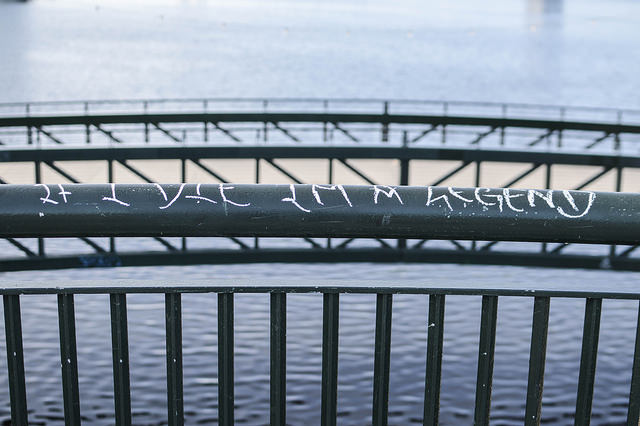 If I DIE IM A LEGEND